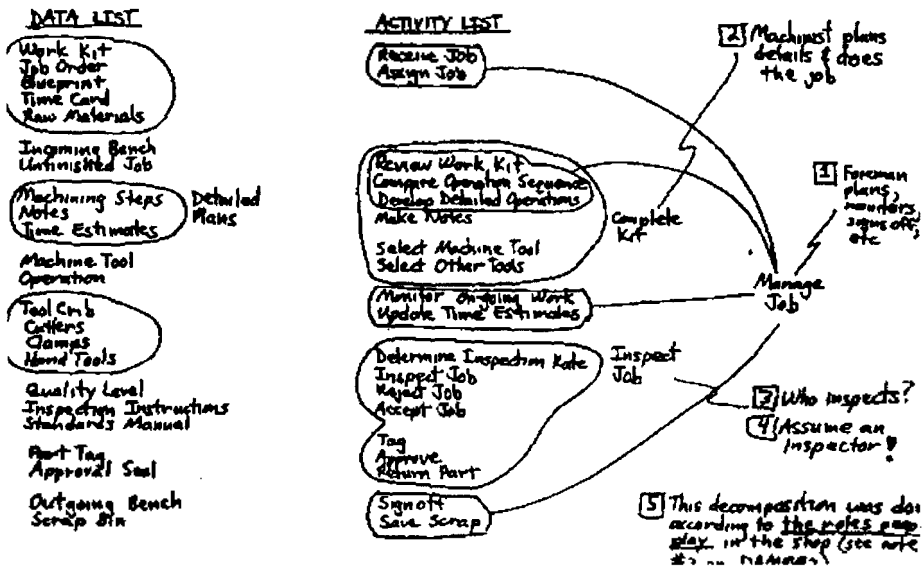 DATA LIST
Work Kit
Job Order
Blueprint
Time Card
Raw Materials
Incoming Bench
Unfinished Job
Machining Steps
Notes
Time Estimates
Detailed
Plans
Machine Tool
Operation
Tool Crib
Cutters
Clamps
Hand Tools
Quality Level
Inspection Instructions
Standards Manual
Part Tag
Approval Seal
Outgoing Bench
Scrap Bin
ACTIVITY LIST
Receive Job
Assign Job
Review Work Kit
Compare Operation Sequence
Develop Detailed Operations
Make Notes
Select Machine Tool
Select Other Tools
Complete
Kit
Monitor On-going Work
Update Time Estimates
Determine Inspection Rate
Inspect Job
Reject Job
Accept Job
Tag
Approve
Return Part
Inspect
Job
Signoff
Save Scrap
2 Machinist plans
details & does
the job
1 Foreman
plans,
monitors,
signs off,
etc
Manage
Job
3 Who inspects?
4 Assume an
inspector!
5 This decomposition was
according to the roles
play in the shop (see note